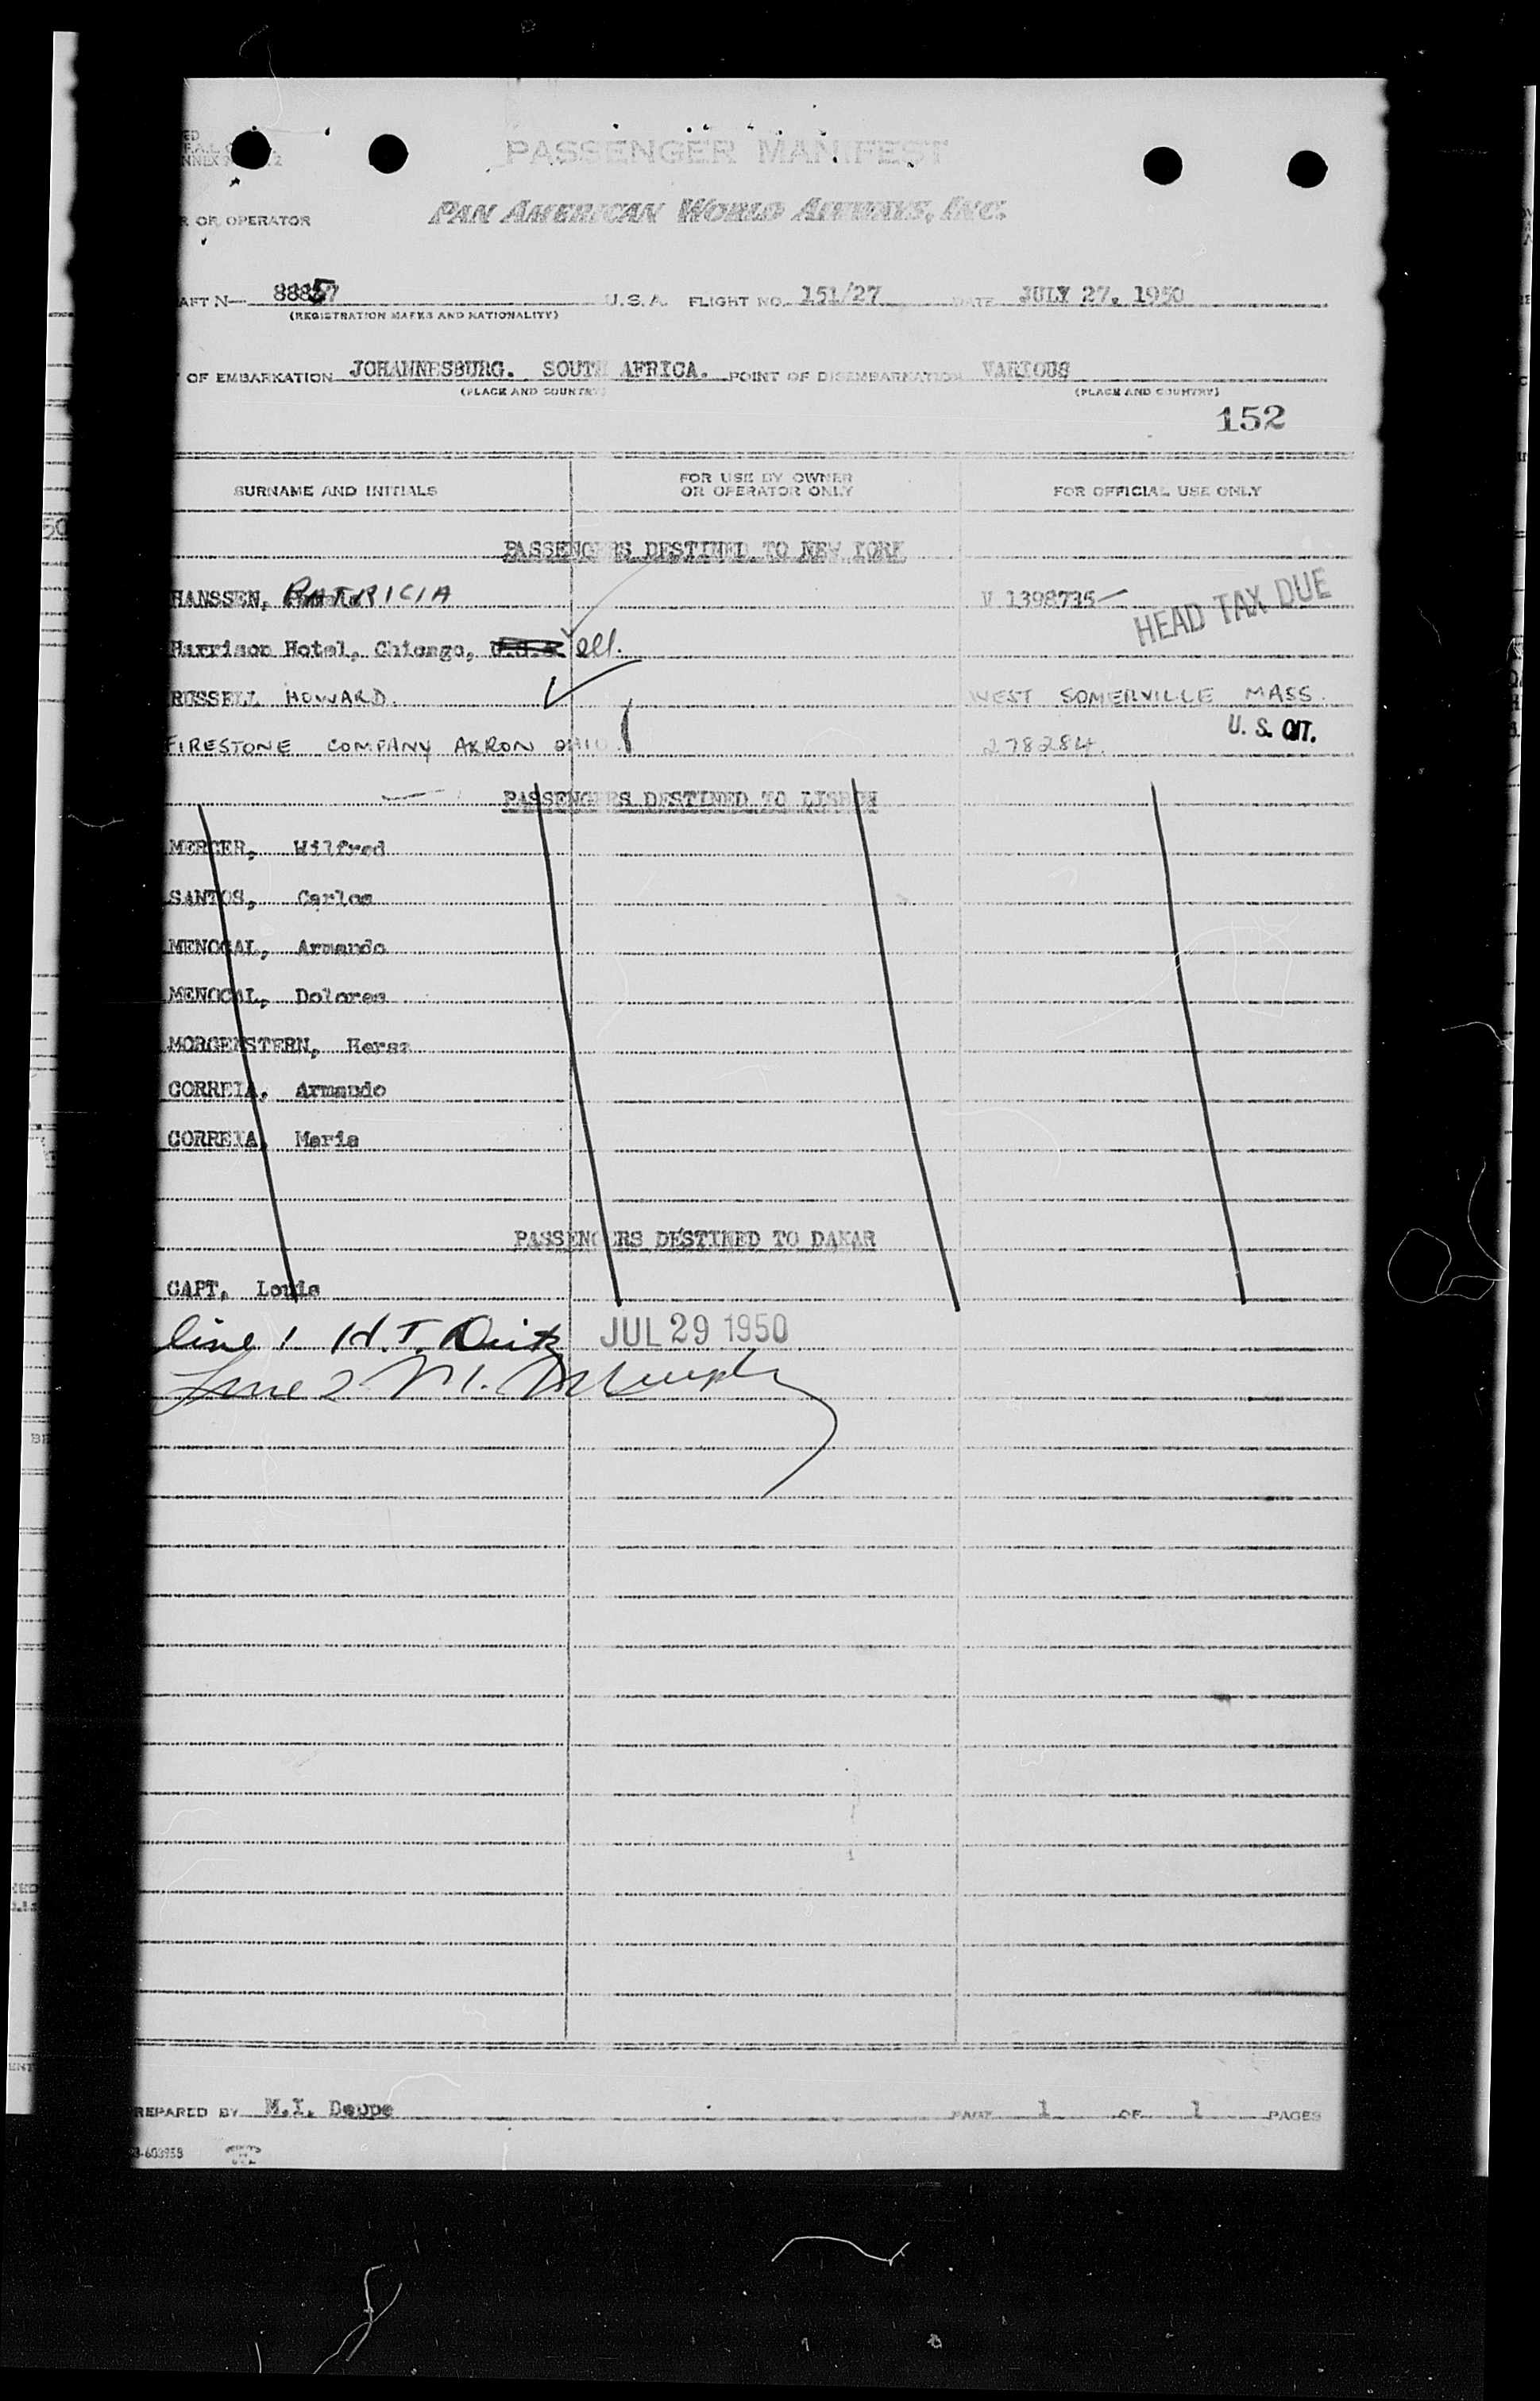 PASSENGER MANIFEST
R OR OPERATOR PAN AMERICAN WORLD AIRWAYS, INC.
AFT N— 88857 U.S.A. FLIGHT NO. 151/27 DATE JULY 27, 1950
(REGISTRATION MARKS AND NATIONALITY)
OF EMBARKATION JOHANNESBURG. SOUTH AFRICA. POINT OF DISEMBARKATION VARIOUS
(PLACE AND COUNTRY) (PLACE AND COUNTRY)
152
SURNAME AND INITIALS FOR USE BY OWNER OR OPERATOR ONLY FOR OFFICIAL USE ONLY
PASSENGERS DESTINED TO NEW YORK
HANSSEN, PATRICIA V 1398735 HEAD TAX DUE
Harrison Hotel, Chicago, U.S.A. Ill.
RUSSELL HOWARD. WEST SOMERVILLE MASS.
FIRESTONE COMPANY AKRON OHIO. 278284. U.S. CIT.
PASSENGERS DESTINED TO LISBON
MERCER, Wilfred
SANTOS, Carlos
MENOCAL, Armando
MENOCAL, Dolores
MORGENSTERN, Hersz
CORREIA, Armando
CORREIA, Maria
PASSENGERS DESTINED TO DAKAR
CAPT, Louis
line 1 H.T. JUL 29 1950
Line 2 M.
PREPARED BY M.I. Deppe PAGE 1 OF 1 PAGES